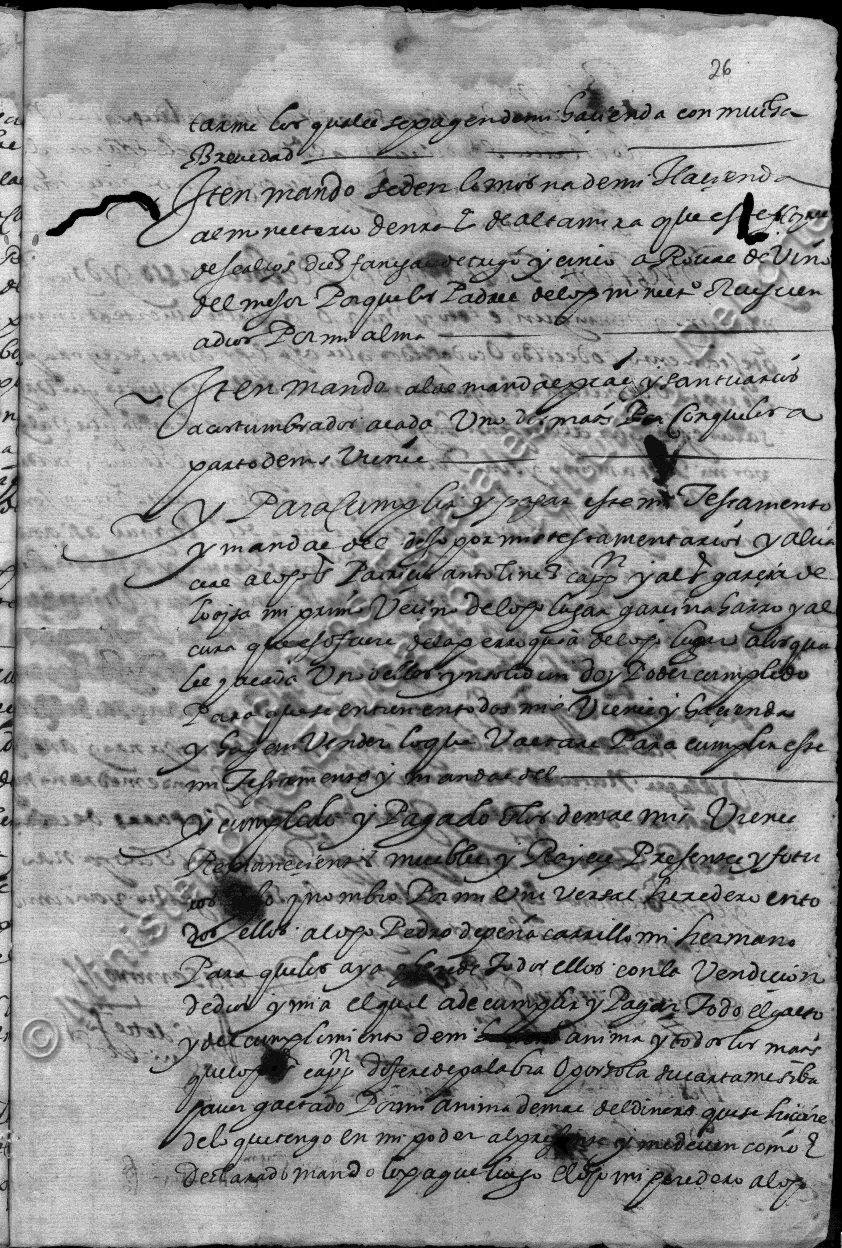 26
tarme los quales se pagen de mi hacienda con mucha
Brevedad
Iten mando se den limosna de mi Hacienda
al monesterio de nra sª de altamira que es de frayles
descalços diez fanegas de trigo y cinco a Rovas de Vino
del mejor Porque los Padres del dho monestº Rueguen
a dios Por mi alma
Iten mando a las mandas pias y santuarios
acostumbrados a cada Uno dos mrs Con que los a
parto de mis Vienes
Y Para Cumplir y pagar este mi Testamento
y mandas del dejo por mis testamentarios y alva
ceas a los dhos Patricio antolinez cappn y al sr garcia de
loaysa mi primo Vecino del dho lugar garcina harro y al
cura que es o fuere de la perroquia del dho lugar a los qua
les y a cada Uno dellos ynsolidun doy Poder cumplido
Para que se entren en todos mis Vienes y hacienda
y hagan Vender lo que Vastare Para cumplir este
mi Testamento y mandas del
Y cumplido y Pagado en los demas mis Vienes
Remanecientes muebles y Rayces Presentes y futu
ros y nombro Por mi Universal heredero en to
dos ellos al dho Pedro de peña carrillo mi hermano
Para que los aya y herede Todos ellos con la Vendicion
de dios y mia el qual a de cumplir y Pagar Todo el gasto
y del cumplimiento de mi anima y todos los mrs
que el dho cappn dijere de palabra O por sola su carta mesiba
haver gastado Por mi anima demas del dinero que se hiciere
del que tengo en mi poder al presente y me deven como
declarado mando lo pague luego el dho mi heredero al dho
© Ministerio de